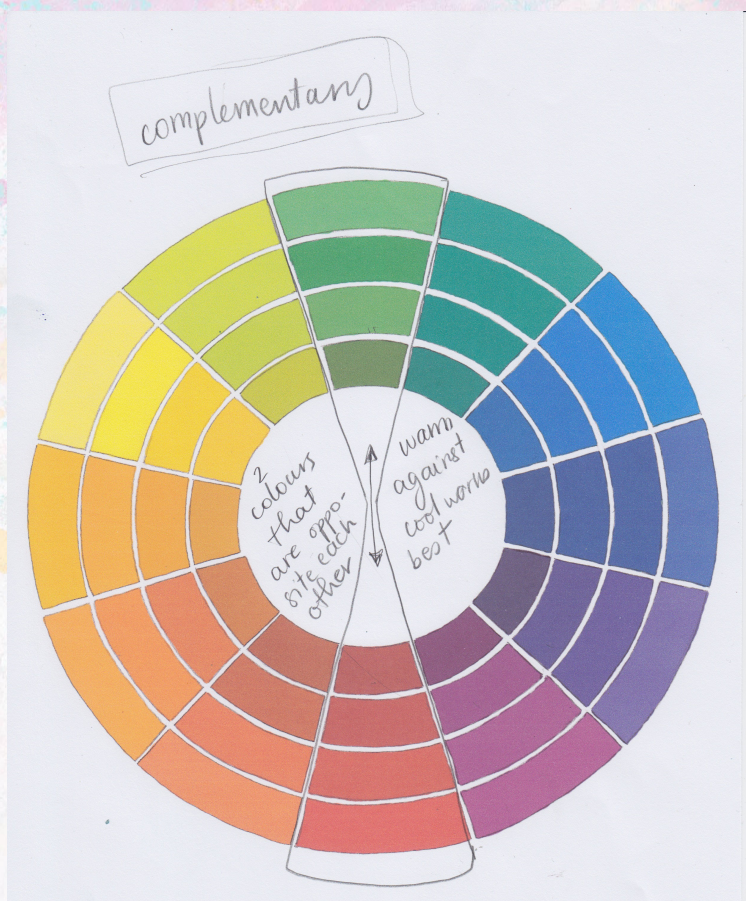 complementary
2
colours
that
are oppo-
site each
other
warm
against
cool works
best